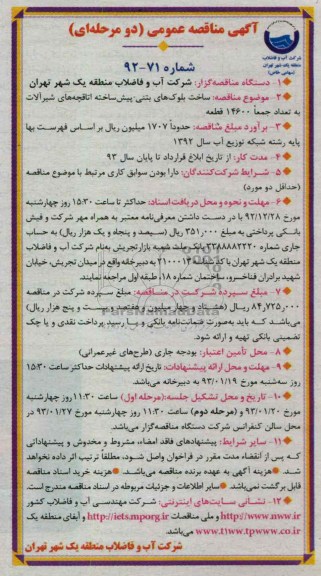 آگهی مناقصه عمومی (دو مرحله‌ای)
شماره ۷۱-۹۲
شرکت آب و فاضلاب
منطقه یک شهر تهران
(سهامی خاص)
۱- دستگاه مناقصه‌گزار: شرکت آب و فاضلاب منطقه یک شهر تهران
۲- موضوع مناقصه: ساخت بلوک‌های بتنی پیش‌ساخته اتاقچه‌های شیرآلات
به تعداد جمعاً ۱۴۶۰۰ قطعه
۳- برآورد مبلغ مناقصه: حدوداً ۱۷۰۷ میلیون ریال بر اساس فهرست بها
پایه رشته شبکه توزیع آب سال ۱۳۹۲
۴- مدت کار: از تاریخ ابلاغ قرارداد تا پایان سال ۹۳
۵- شرایط شرکت‌کنندگان: دارا بودن سوابق کاری مرتبط با موضوع مناقصه
(حداقل دو مورد)
۶- مهلت و نحوه و محل دریافت اسناد: حداکثر تا ساعت ۱۵:۳۰ روز چهارشنبه
مورخ ۹۲/۱۲/۲۸ با در دست داشتن معرفی‌نامه معتبر به همراه مهر شرکت و فیش
بانکی پرداختی به مبلغ ۳۵۱٫۰۰۰ ریال (سیصد و پنجاه و یک هزار ریال) به حساب
جاری شماره بانک ملت شعبه بازار تجریش به‌نام شرکت آب و فاضلاب
منطقه یک شهر تهران با کد شناسه به دبیرخانه واقع در میدان تجریش، خیابان
شهید برادران فناخسرو، ساختمان شماره ۱۸، طبقه اول مراجعه نمایند.
۷- مبلغ سپرده شرکت در مناقصه: مبلغ سپرده شرکت در مناقصه
۸۴٫۷۲۵٫۰۰۰ ریال (هشتاد و چهار میلیون و هفتصد و بیست و پنج هزار ریال)
می‌باشد که باید به‌صورت ضمانت‌نامه بانکی و یا رسید پرداخت نقدی و یا چک
تضمینی بانکی تهیه و ارائه شود.
۸- محل تأمین اعتبار: بودجه جاری (طرح‌های غیرعمرانی)
۹- مهلت و محل ارائه پیشنهادات: تاریخ ارائه پیشنهادات حداکثر ساعت ۱۵:۳۰
روز سه‌شنبه مورخ ۹۳/۰۱/۱۹ به دبیرخانه می‌باشد.
۱۰- تاریخ و محل تشکیل جلسه:(مرحله اول) ساعت ۱۱:۳۰ روز چهارشنبه
مورخ ۹۳/۰۱/۲۰ و (مرحله دوم) ساعت ۱۱:۳۰ روز چهارشنبه مورخ ۹۳/۰۱/۲۷ در
محل سالن کنفرانس شرکت دستگاه مناقصه‌گزار می‌باشد.
۱۱- سایر شرایط: پیشنهادهای فاقد امضاء، مشروط و مخدوش و پیشنهاداتی
که پس از انقضاء مدت مقرر در فراخوان واصل شود، مطلقاً ترتیب اثر داده نخواهد
شد. هزینه آگهی به عهده برنده مناقصه می‌باشد. هزینه خرید اسناد مناقصه
قابل برگشت نمی‌باشد. سایر اطلاعات و جزئیات مربوطه در اسناد مناقصه مندرج است.
۱۲- نشانی سایت‌های اینترنتی: شرکت مهندسی آب و فاضلاب کشور
و ملی مناقصات http://iets.mporg.ir و آبفای منطقه یک
می‌باشد.
شرکت آب و فاضلاب منطقه یک شهر تهران